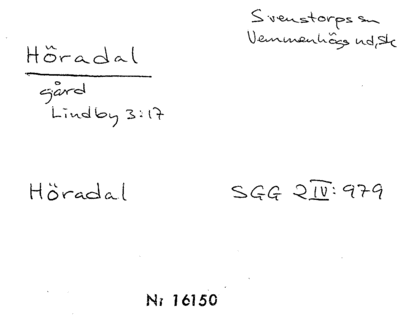 Svenstorps sn
Vemmenhögs hd, Sk
Höradal
gård
Lindby 3:17
Höradal SGG 2 IV: 979
Nr 16150